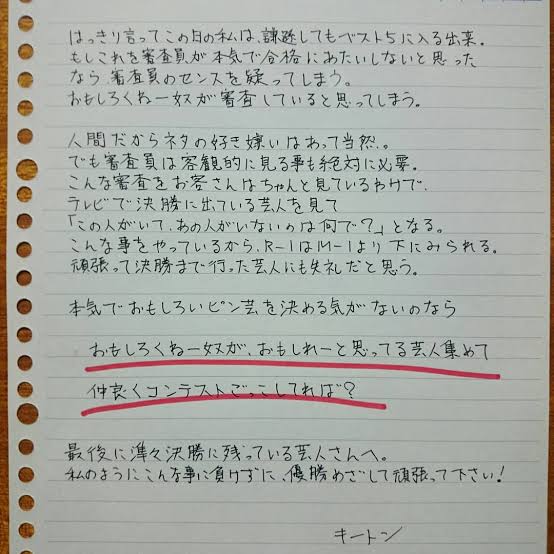 はっきり言ってこの日の私は、謙遜してもベスト5に入る出来。
もしこれを審査員が本気で合格にあたいしないと思った
なら、審査員のセンスを疑ってしまう。
おもしろくねー奴が審査していると思ってしまう。
人間だからネタの好き嫌いはあって当然。
でも審査員は客観的に見る事も絶対に必要。
こんな審査をお客さんはちゃんと見ているわけで、
テレビで決勝に出ている芸人を見て
「この人がいて、あの人がいないのは何で?」となる。
こんな事をやっているから、R-1はM-1より下にみられる。
頑張って決勝まで行った芸人にも失礼だと思う。
本気でおもしろいピン芸を決める気がないのなら
おもしろくねー奴が、おもしれーと思ってる芸人集めて
仲良くコンテストごっこしてれば?
最後に準々決勝に残っている芸人さんへ。
私のようにこんな事に負けずに、優勝めざして頑張って下さい!
キートン